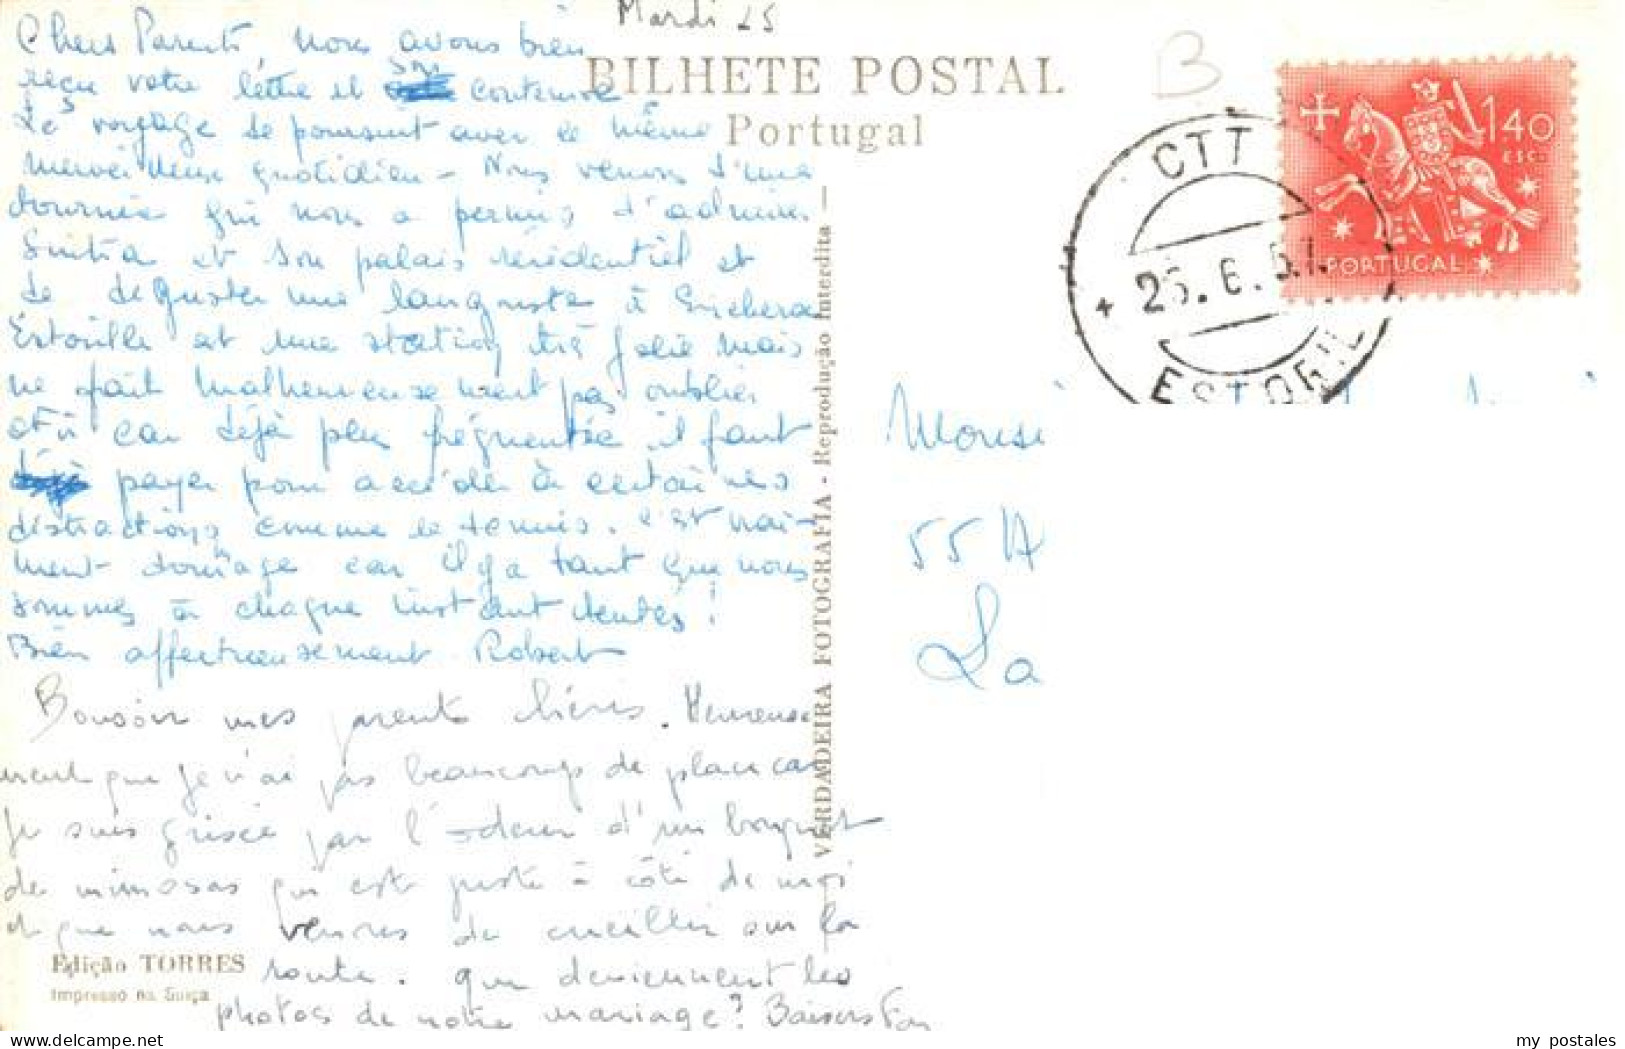 Mardi 25
Chers Parents, nous avons bien
reçu votre lettre et son contenu
Le voyage se poursuit avec le même
merveilleux quotidien - Nous venons d'une
tournée qui nous a permis d'admirer
Sintra et son palais résidentiel et
de déguster une langouste à Ericeira
Estoril est une station très jolie mais
ne fait malheureusement pas oublier
car déjà plus fréquentée il faut
payer pour accéder à certaines
distractions comme le tennis. C'est vrai-
ment dommage car il y a tant que nous
sommes à chaque instant tentés !
Bien affectueusement Robert
Bonsoir mes parents chéris. Heureuse
ment que je n'ai pas beaucoup de place car
je suis grisée par l'odeur d'un bouquet
de mimosas qui est juste à côté de moi
et que nous venons de cueillir sur la
route. que deviennent les
photos de notre mariage? Baisers
BILHETE POSTAL
Portugal
VERDADEIRA FOTOGRAFIA - Reprodução Interdita
Edição TORRES
Impresso na Suiça
B
CTT
25.6.51
ESTORIL
1$40
ESC.
PORTUGAL
Monsi
55 A
La
my postales